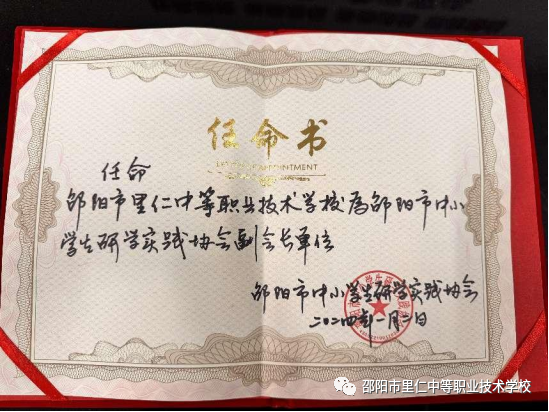 任命书
任命
邵阳市里仁中等职业技术学校为邵阳市中小
学生研学实践协会副会长单位
邵阳市中小学生研学实践协会
二〇二四年一月二日
邵阳市里仁中等职业技术学校